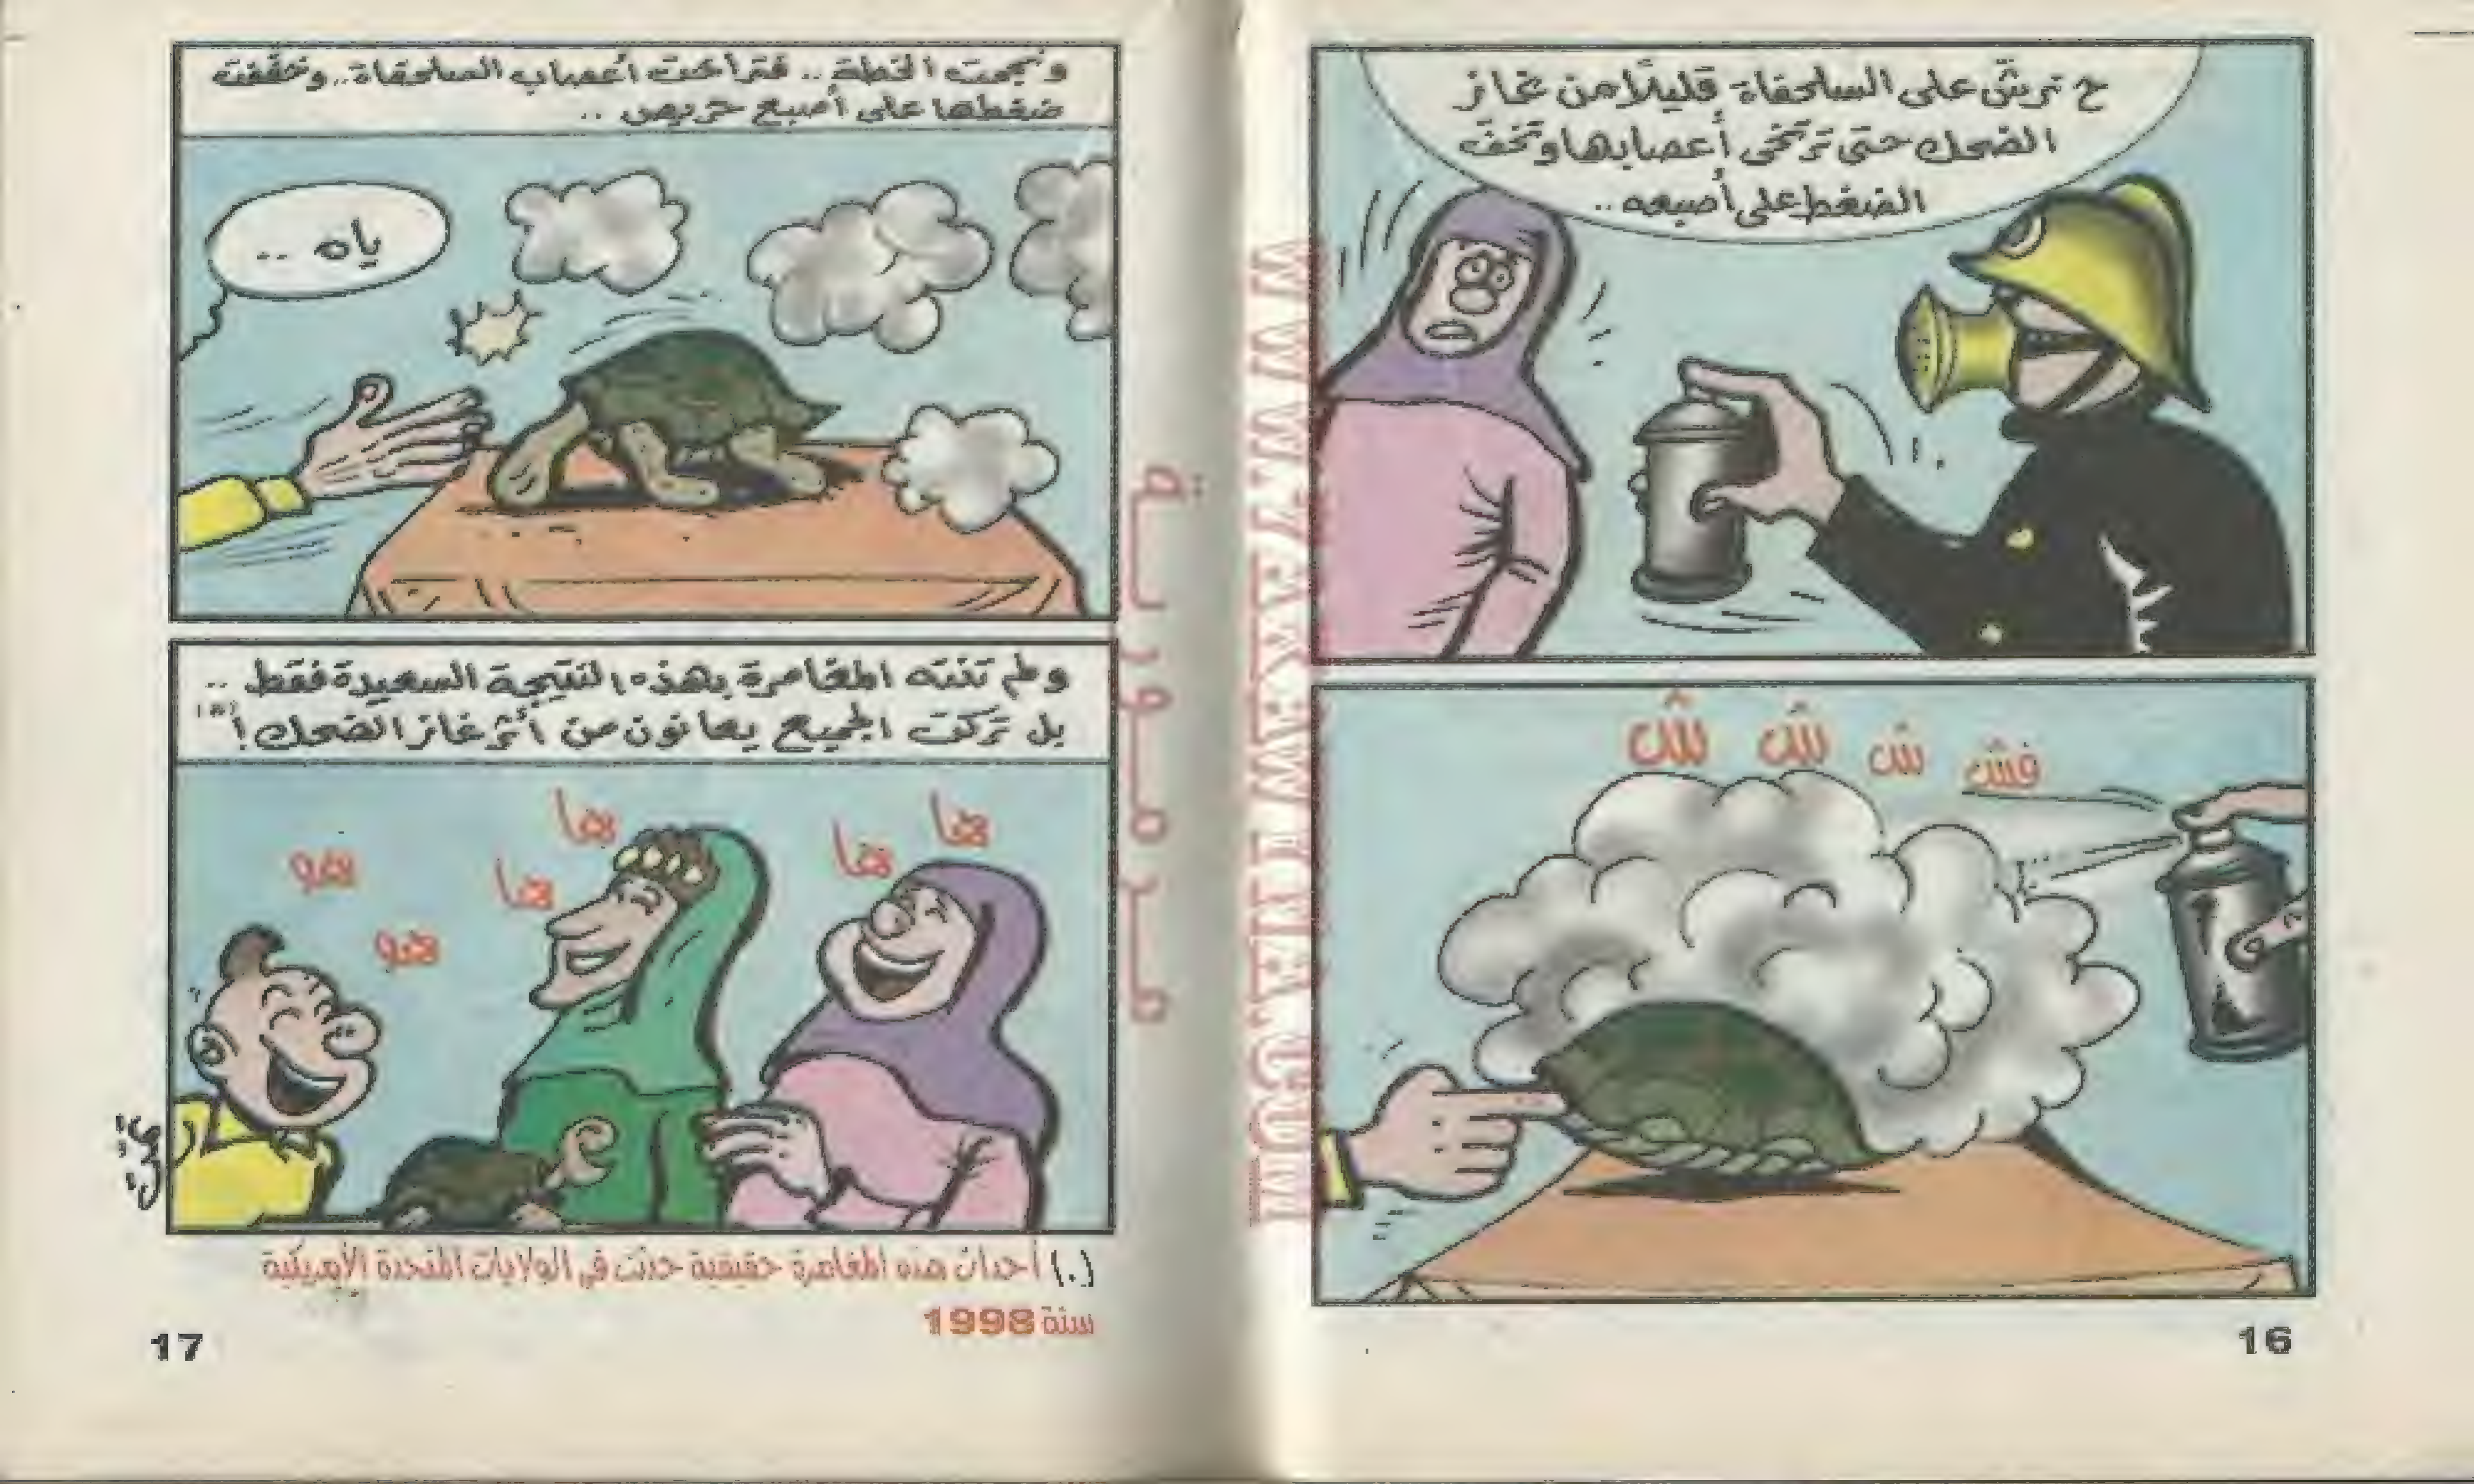 ح نرشّ على السلحفاة قليلًا من غاز
الضحك حتى ترتخى أعصابها وتخفّ
الضغط على أصبعه ..
فش ش ش ش
16
ونجحت الخطة .. فتراخت أعصاب السلحفاة .. وخففت
ضغطها على أصبع حريص ..
ياه ..
ولم تنته المغامرة بهذه النتيجة السعيدة فقط ..
بل تركت الجميع يعانون من أثر غاز الضحك !
ها ها
ها ها
هو
هو
(.) أحداث هذه المغامرة حقيقية حدثت فى الولايات المتحدة الأمريكية
سنة 1998
17